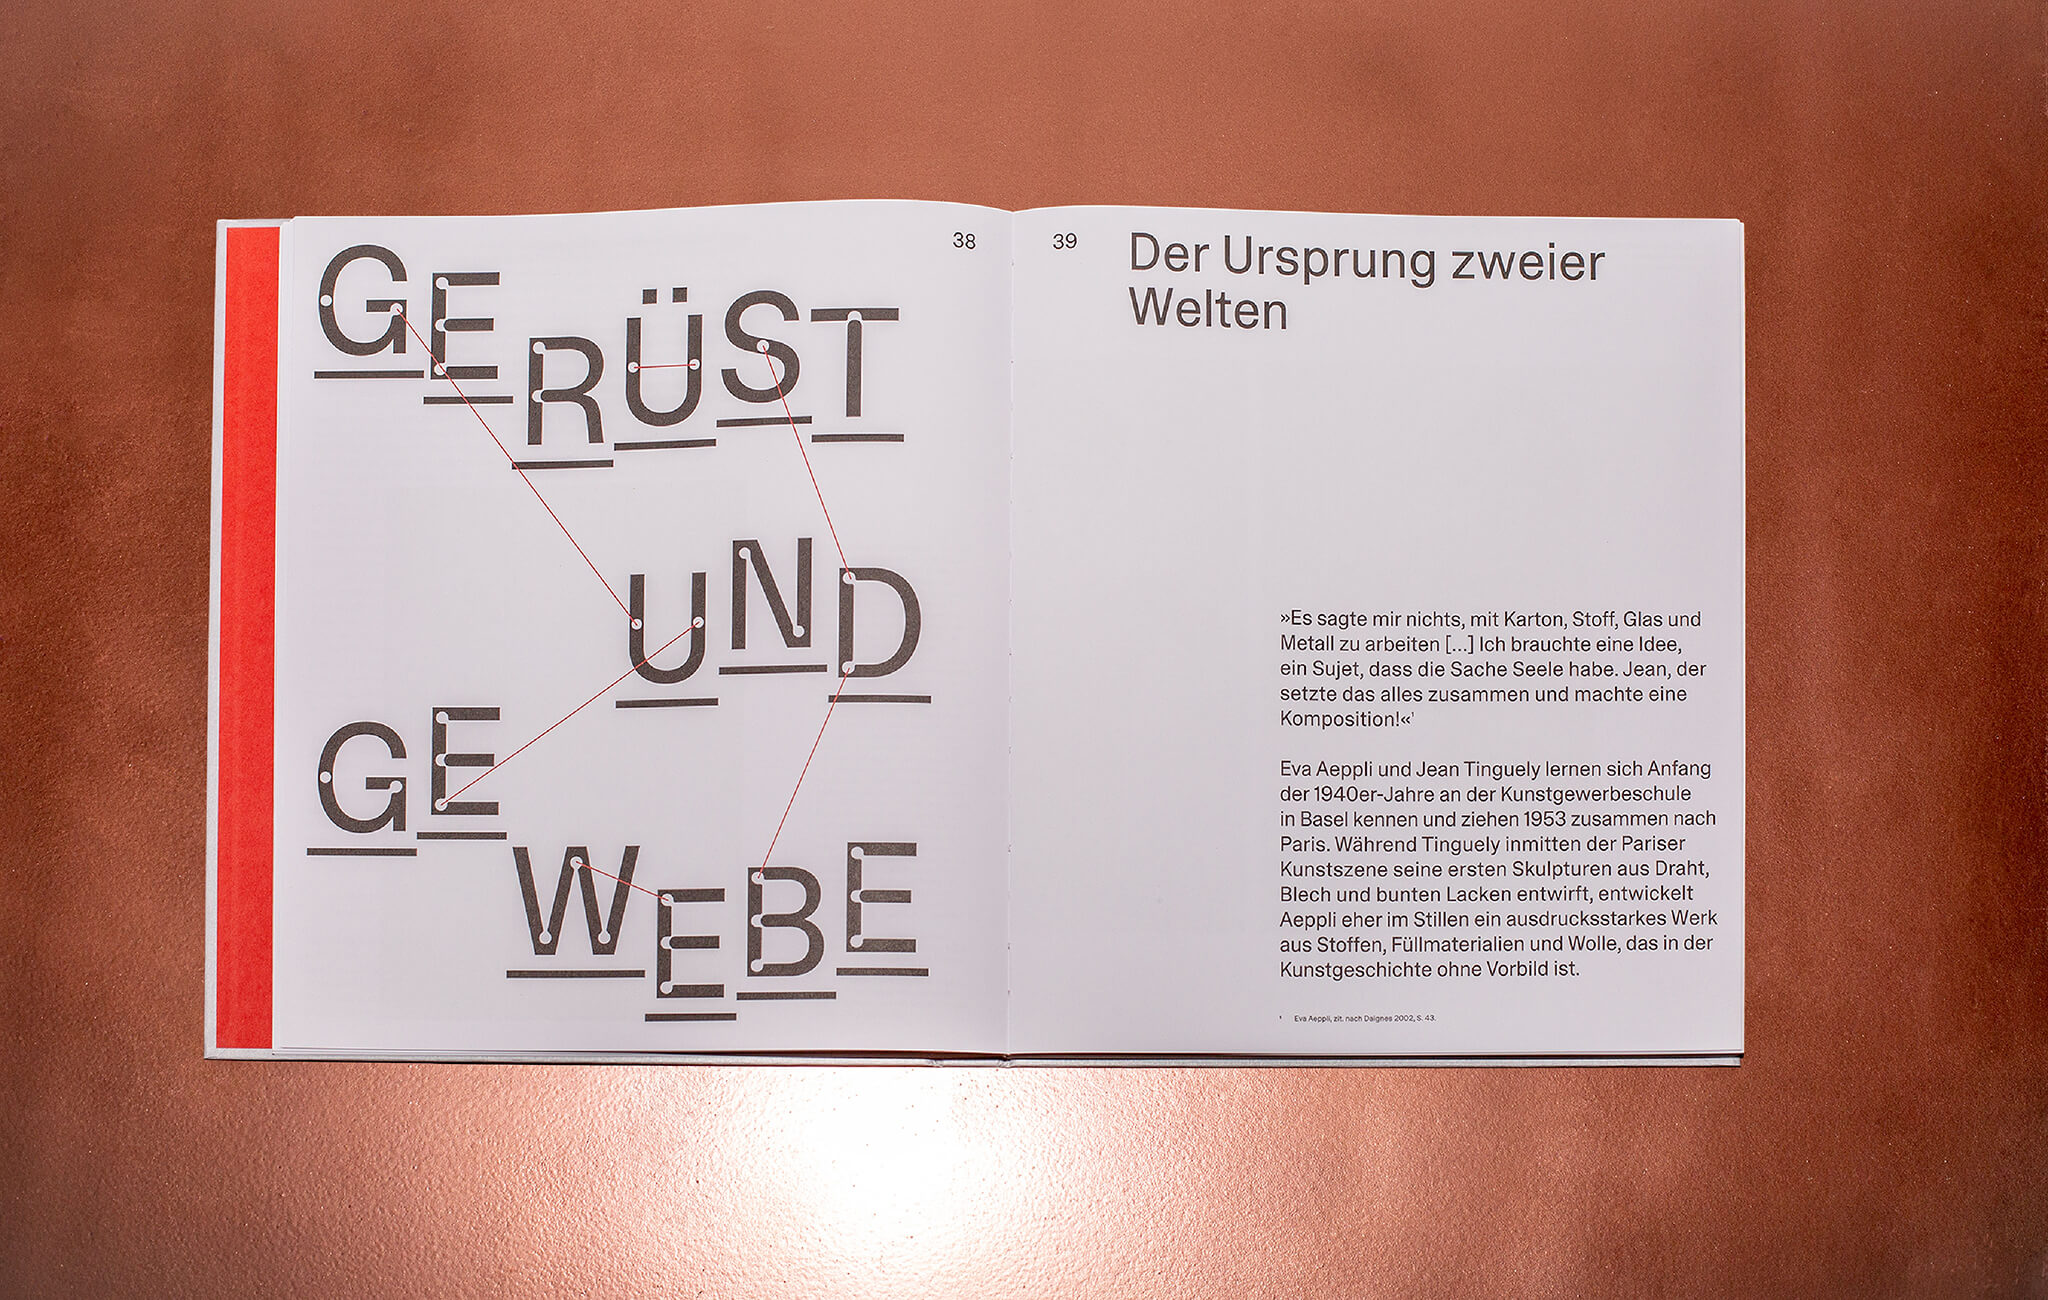 38
GERÜST
UND
GE
WEBE
39
Der Ursprung zweier
Welten
»Es sagte mir nichts, mit Karton, Stoff, Glas und
Metall zu arbeiten [...] Ich brauchte eine Idee,
ein Sujet, dass die Sache Seele habe. Jean, der
setzte das alles zusammen und machte eine
Komposition!«¹
Eva Aeppli und Jean Tinguely lernen sich Anfang
der 1940er-Jahre an der Kunstgewerbeschule
in Basel kennen und ziehen 1953 zusammen nach
Paris. Während Tinguely inmitten der Pariser
Kunstszene seine ersten Skulpturen aus Draht,
Blech und bunten Lacken entwirft, entwickelt
Aeppli eher im Stillen ein ausdrucksstarkes Werk
aus Stoffen, Füllmaterialien und Wolle, das in der
Kunstgeschichte ohne Vorbild ist.
¹ Eva Aeppli, zit. nach Daignes 2002, S. 43.